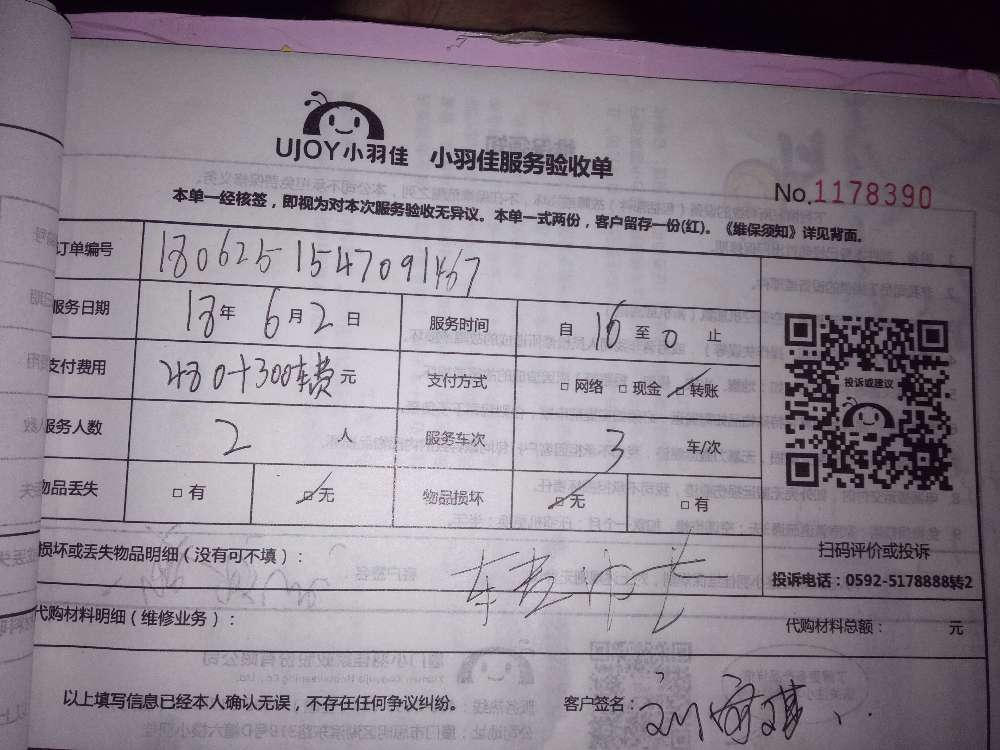 UJOY小羽佳 小羽佳服务验收单
No.1178390
本单一经核签，即视为对本次服务验收无异议。本单一式两份，客户留存一份(红)。《维保须知》详见背面。
订单编号 1806251547091467
服务日期 18年6月2日 服务时间 自16至0止
支付费用 480+300车费元 支付方式 □网络 □现金 □转账
投诉或建议
服务人数 2人 服务车次 3车/次
物品丢失 □有 □无 物品损坏 □无 □有
损坏或丢失物品明细（没有可不填）：
扫码评价或投诉
投诉电话：0592-5178888转2
代购材料明细（维修业务）： 代购材料总额： 元
以上填写信息已经本人确认无误，不存在任何争议纠纷。 客户签名：